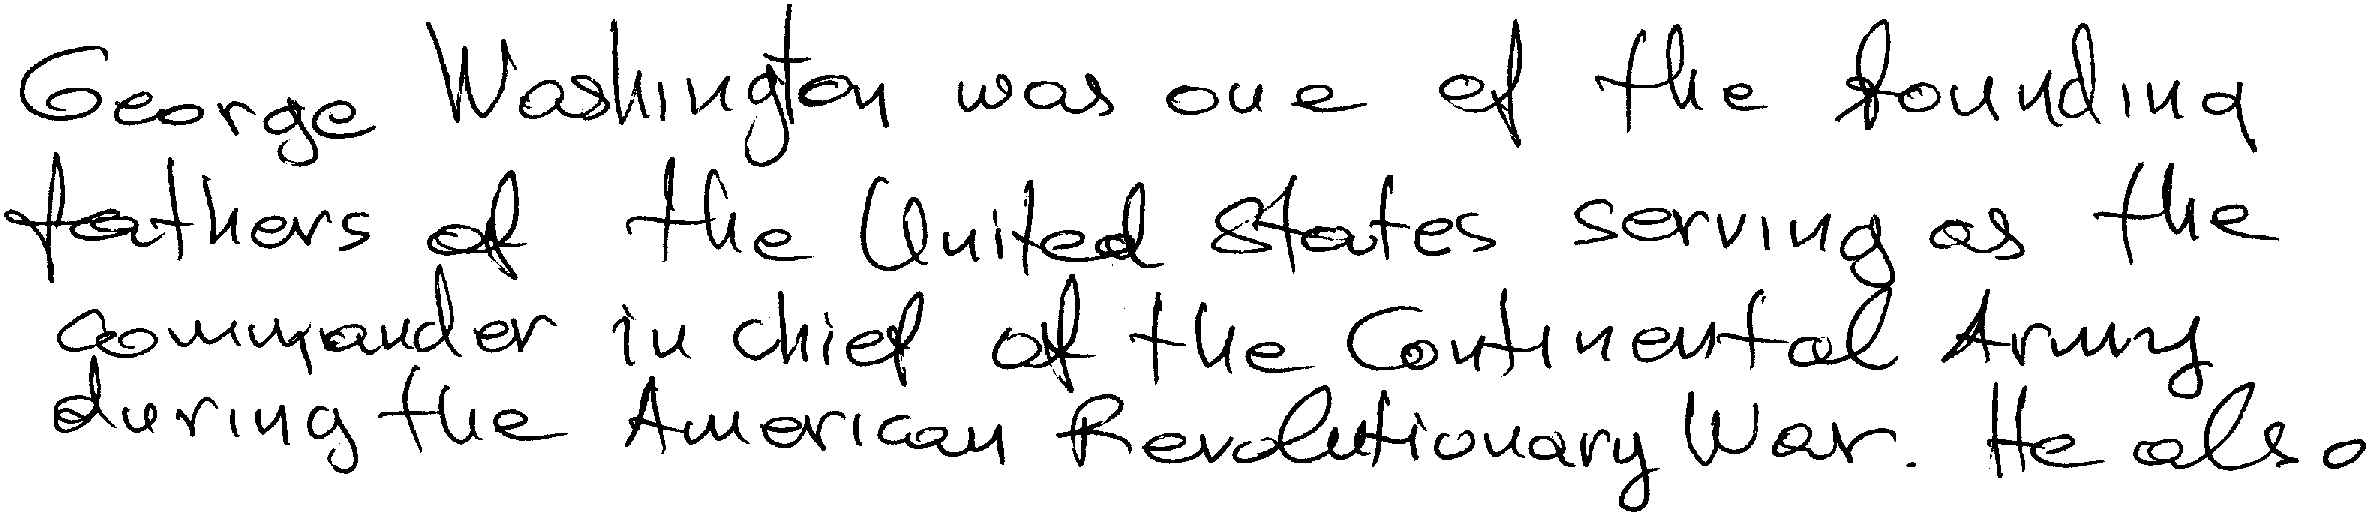 George Washington was one of the founding
fathers of the United States serving as the
commander in chief of the Continental Army
during the American Revolutionary War. He also